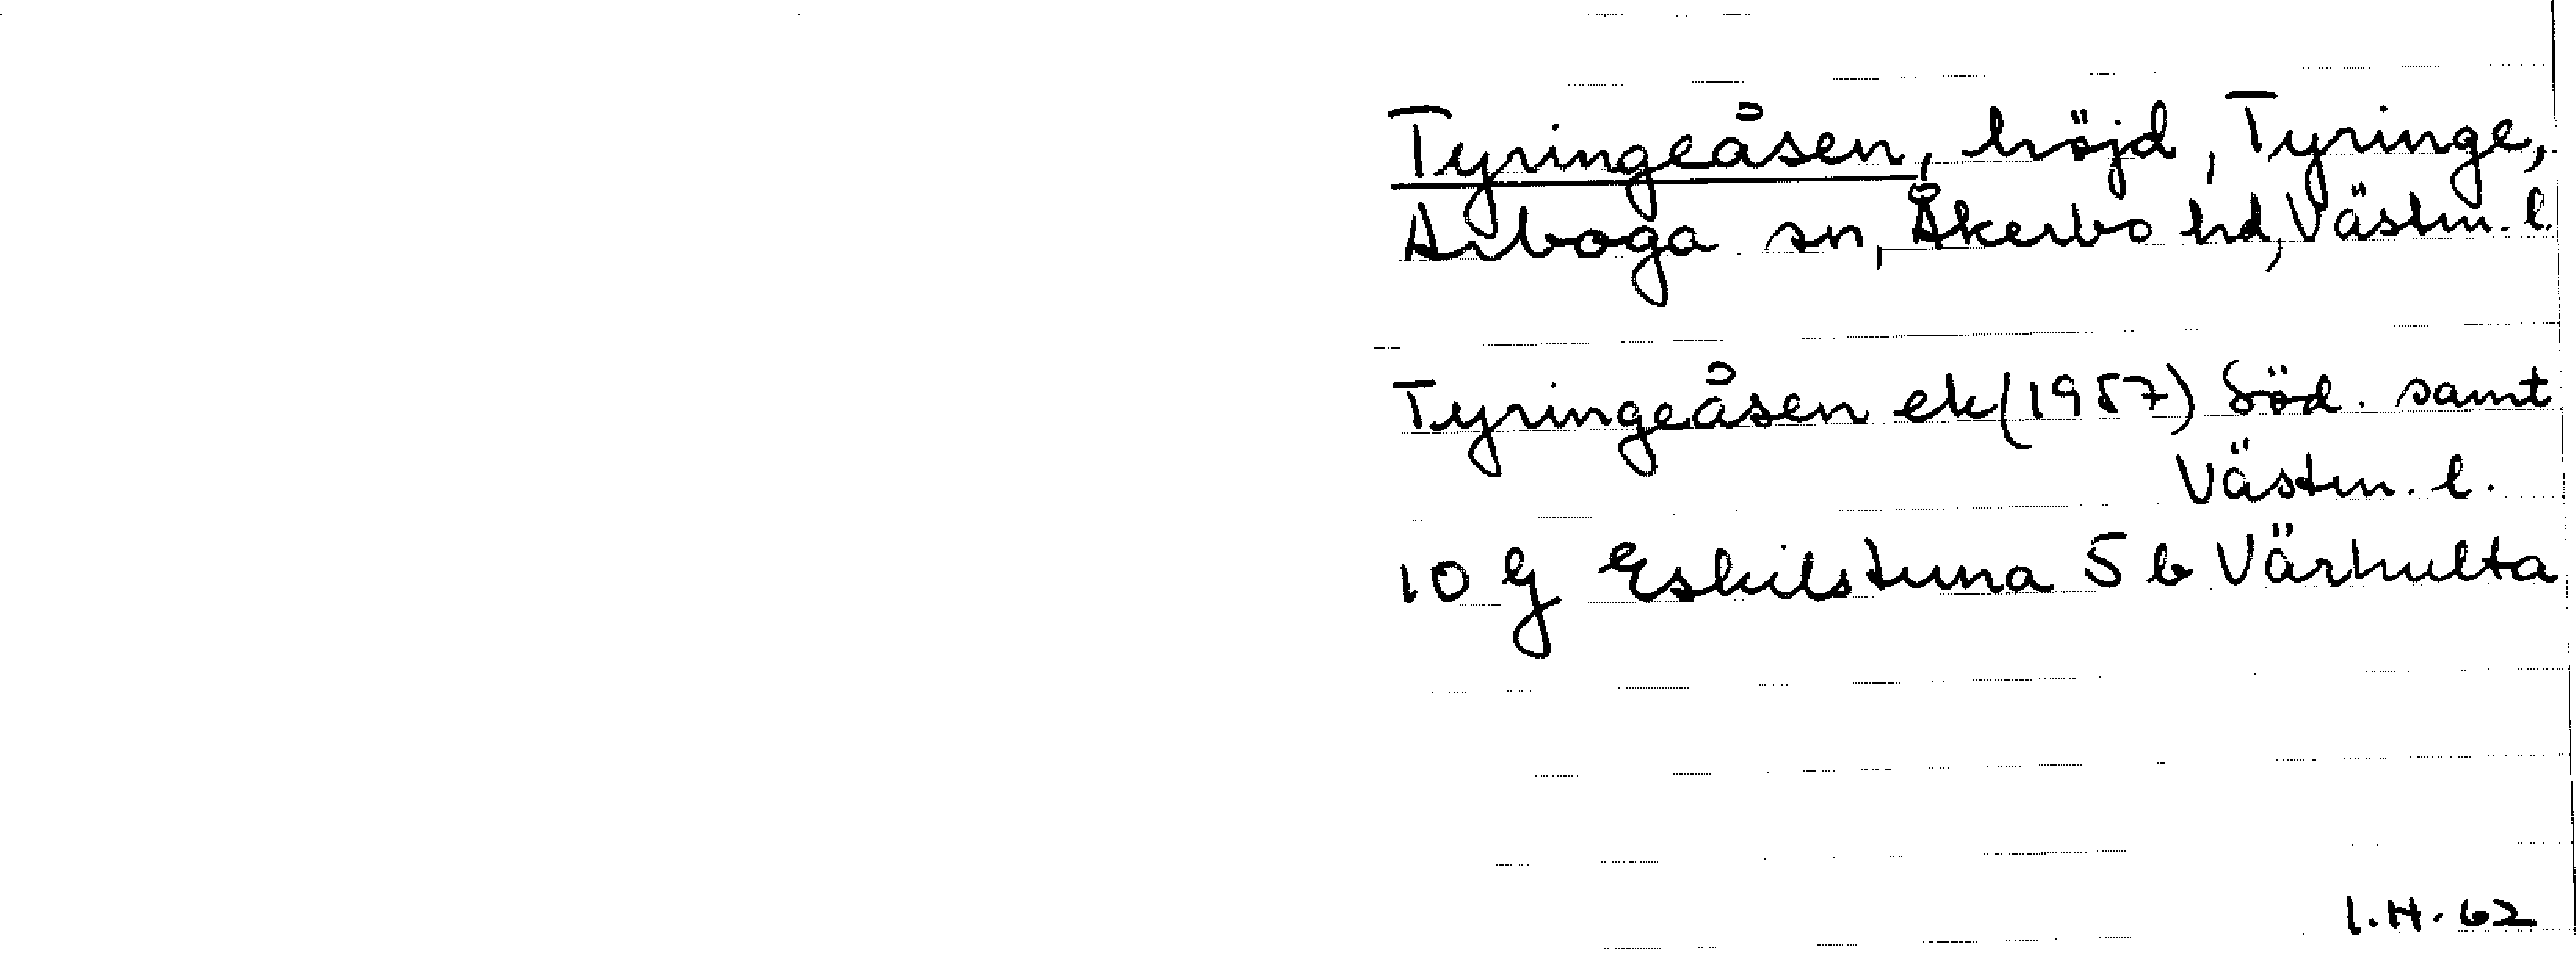 Tyringeåsen, höjd, Tyringe,
Arboga sn, Åkerbo hd, Västm. l.
Tyringeåsen ek (1957) Söd. samt
Västm. l.
10 G Eskilstuna 5 b Värhulta
I.H. 62